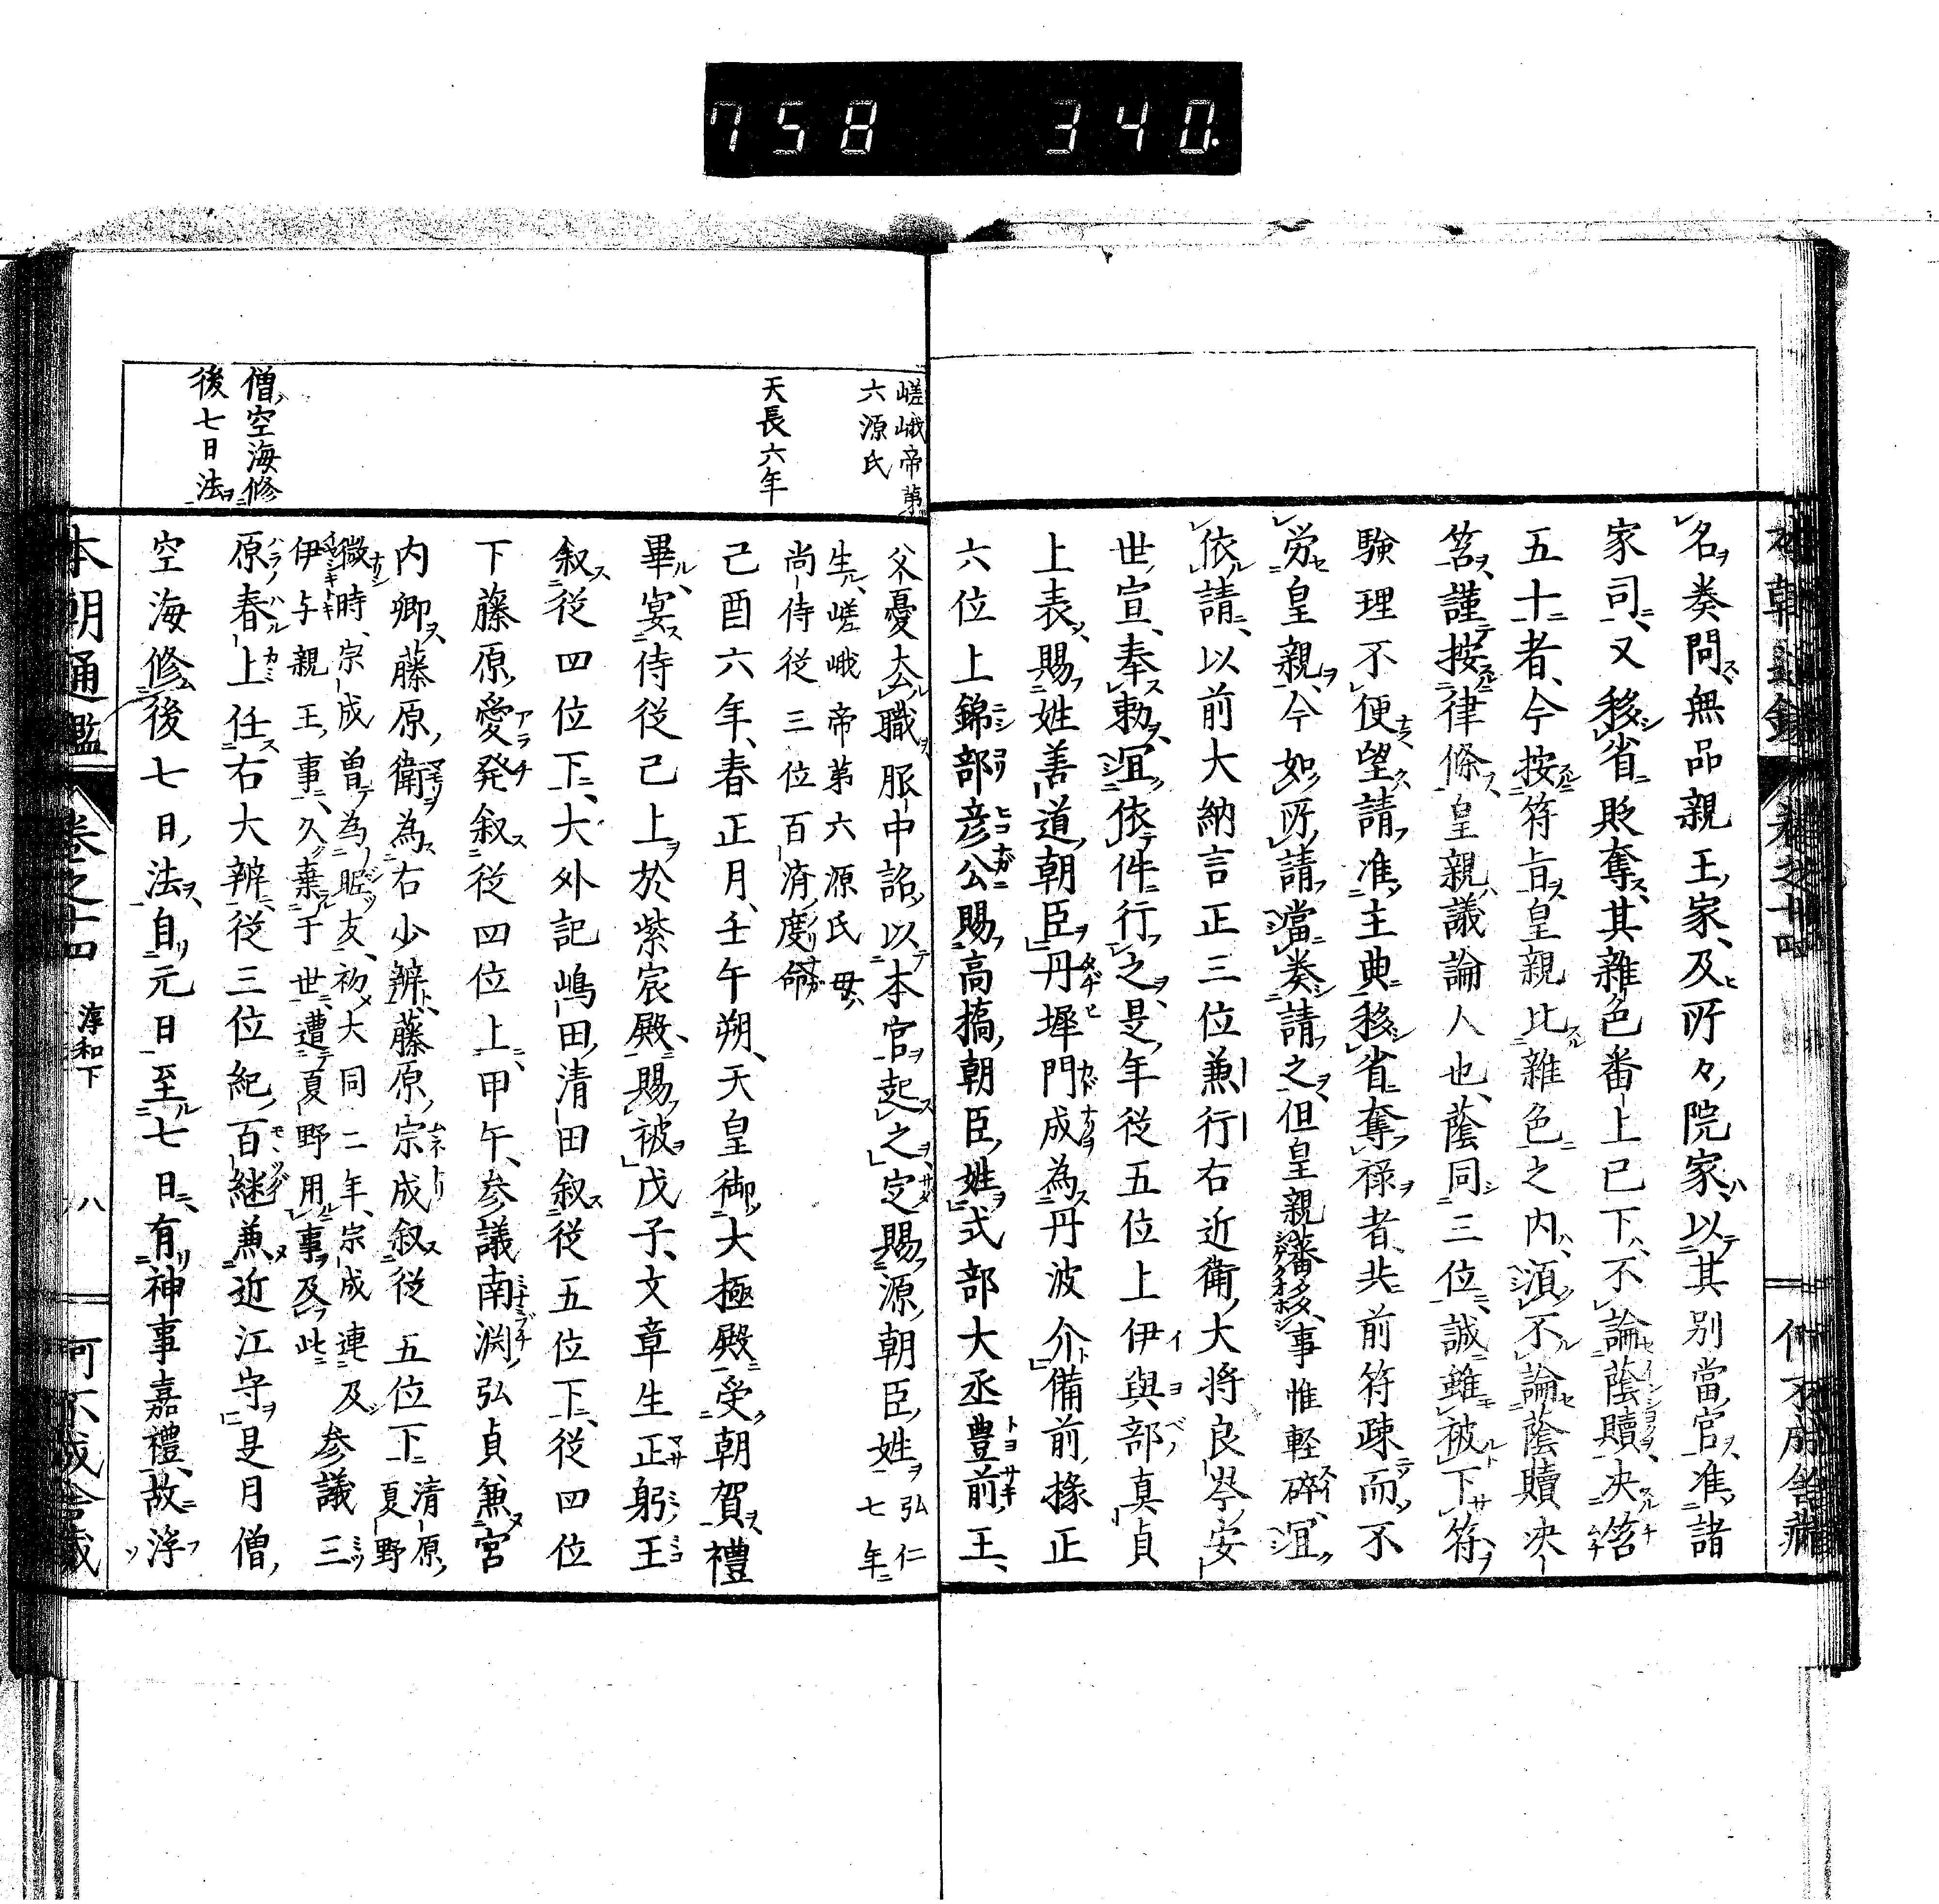 758 340.
名奏問無品親王家及所々院家以其別當官准諸
家司又移省貶奪其雜色番上已下不論蔭贖决笞
五十者今按符旨皇親比雜色之内須不論蔭贖决
笞謹按律條皇親議論人也蔭同三位誠雖被下符
驗理不便望請准主典移省奪禄者共前符疎而不
労皇親今如所請當奏請之但皇親藩移事惟輕碎宜
依請以前大納言正三位兼行右近衛大將良岑安
世宣奉勅宜依件行之是年從五位上伊與部真貞
上表賜姓善道朝臣丹墀門成為丹波介備前掾正
六位上錦部彦公賜高橋朝臣姓式部大丞豊前王
嵯峨帝第
六源氏
父憂去職服中詔以本官起之定賜源朝臣姓弘仁七年
生嵯峨帝第六源氏母
尚侍從三位百濟慶命
天長六年
己酉六年春正月壬午朔天皇御大極殿受朝賀禮
畢宴侍從已上於紫宸殿賜被戊子文章生正躬王
叙從四位下大外記嶋田清田叙從五位下從四位
下藤原愛発叙從四位上甲午参議南渕弘貞兼宮
内卿藤原衛為右少辨藤原宗成叙從五位下清原夏野
微時宗成曽為昵友初大同二年宗成連及
伊与親王事久棄于世遭夏野用事及此
参議三
原春上任右大辨從三位紀百継兼近江守是月僧
僧空海修
後七日法
空海修後七日法自元日至七日有神事嘉禮故浮
本朝通鑑 卷之十四 淳和下 八